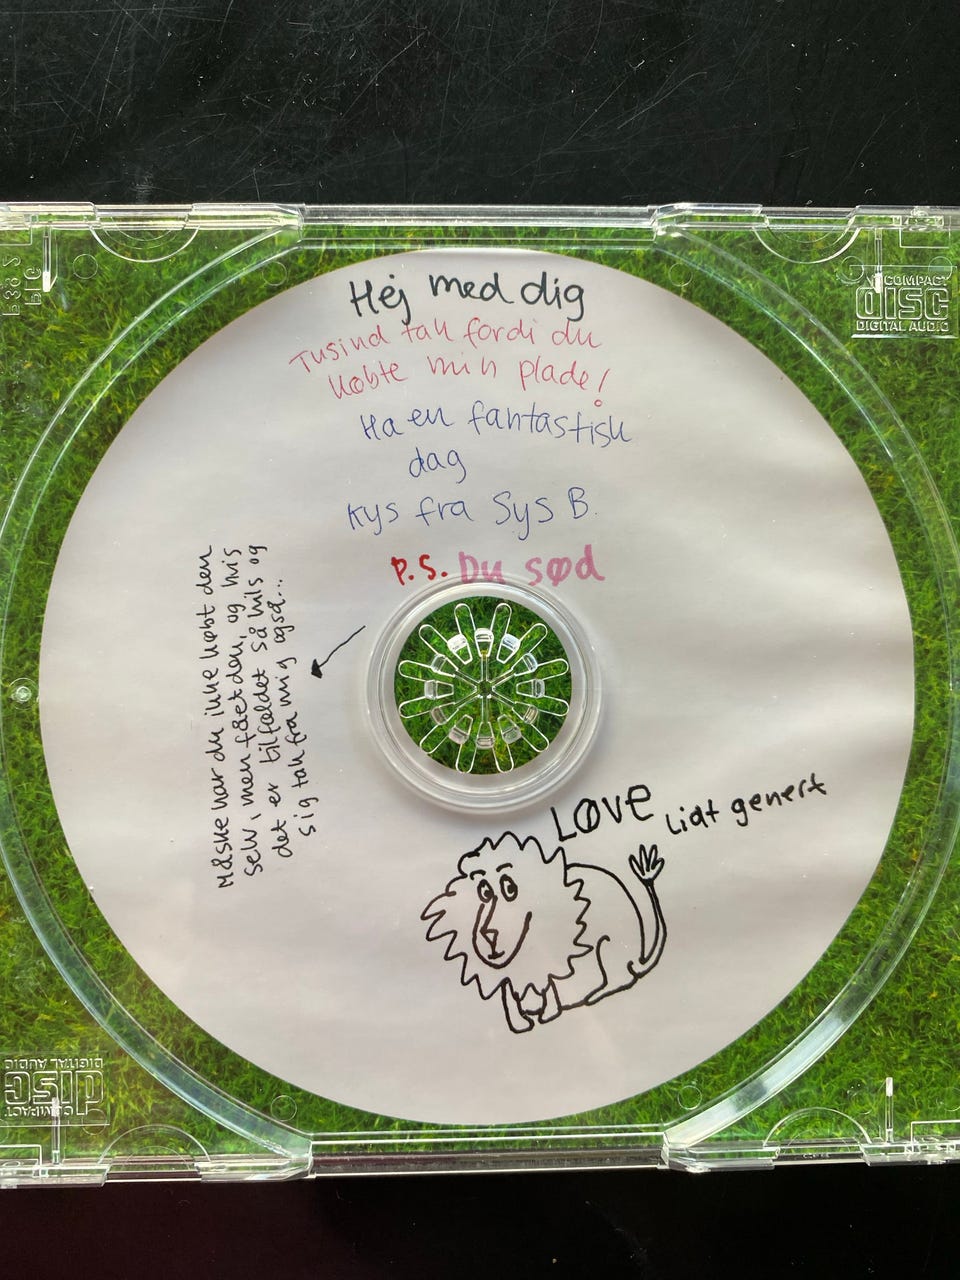 Hej med dig
Tusind tak fordi du
købte min plade!
Ha en fantastisk
dag
Kys fra Sys B.
P.S. Du sød
Måske har du ikke købt den
selv, men fået den, og hvis
det er tilfældet så hils og
sig tak fra mig også...
LØVE lidt genert
COMPACT
disc
DIGITAL AUDIO
COMPACT
disc
DIGITAL AUDIO